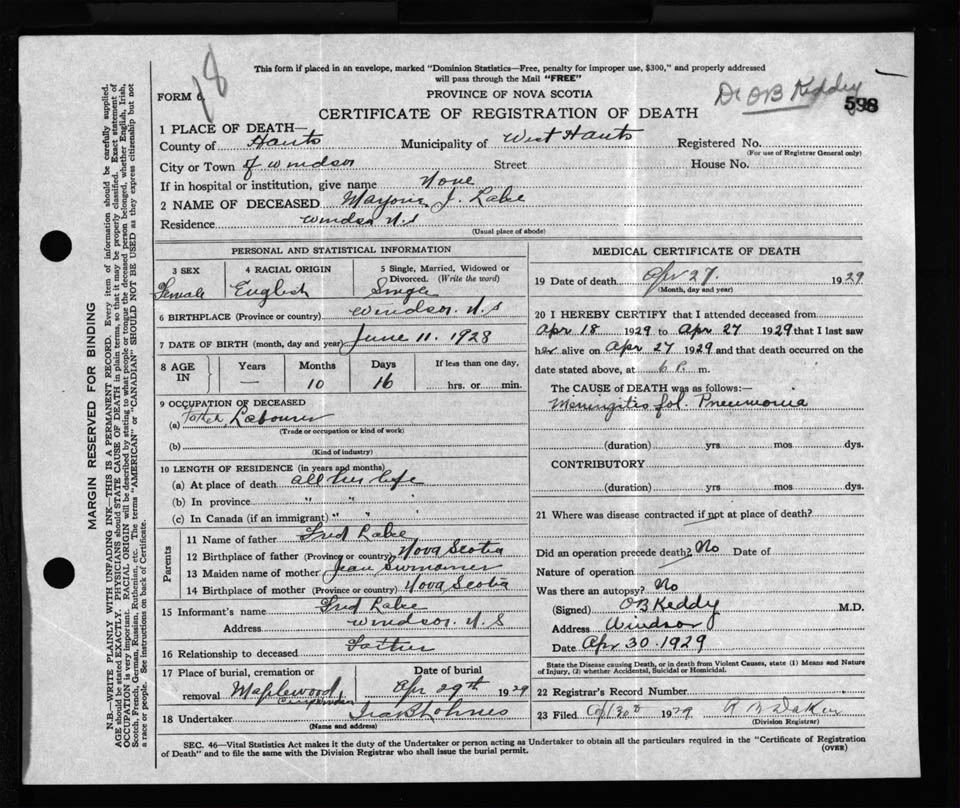 18
This form if placed in an envelope, marked "Dominion Statistics—Free, penalty for improper use, $300," and properly addressed
will pass through the Mail "FREE"
FORM 6.
PROVINCE OF NOVA SCOTIA
Dr OB Keddy
598
CERTIFICATE OF REGISTRATION OF DEATH
1 PLACE OF DEATH—
County of Hants Municipality of West Hants Registered No.
(For use of Registrar General only)
City or Town of Windsor Street House No.
If in hospital or institution, give name None
2 NAME OF DECEASED Marjorie J. Lake
Residence Windsor N.S
(Usual place of abode)
PERSONAL AND STATISTICAL INFORMATION
3 SEX 4 RACIAL ORIGIN 5 Single, Married, Widowed or
Divorced. (Write the word)
Female English Single
6 BIRTHPLACE (Province or country) Windsor. N.S
7 DATE OF BIRTH (month, day and year) June 11. 1928
8 AGE
IN
Years Months Days If less than one day,
— 10 16 hrs. or min.
9 OCCUPATION OF DECEASED
(a) Father Labourer
(Trade or occupation or kind of work)
(b)
(Kind of industry)
10 LENGTH OF RESIDENCE (in years and months)
(a) At place of death all her life
(b) In province " "
(c) In Canada (if an immigrant) " "
Parents
11 Name of father Fred Lake
12 Birthplace of father (Province or country) Nova Scotia
13 Maiden name of mother Jean
14 Birthplace of mother (Province or country) Nova Scotia
15 Informant's name Fred Lake
Address Windsor. N.S
16 Relationship to deceased Father
17 Place of burial, cremation or
removal Maplewood,
Date of burial
Apr 29th 1929
18 Undertaker
(Name and address)
MEDICAL CERTIFICATE OF DEATH
19 Date of death Apr 27. 1929
(Month, day and year)
20 I HEREBY CERTIFY that I attended deceased from
Apr 18 1929 to Apr 27 1929 that I last saw
her alive on Apr 27 1929 and that death occurred on the
date stated above, at 6 P. m.
The CAUSE OF DEATH was as follows:—
Meningitis fol. Pneumonia
(duration) yrs mos dys.
CONTRIBUTORY
(duration) yrs. mos. dys.
21 Where was disease contracted if not at place of death?
Did an operation precede death? No Date of
Nature of operation
Was there an autopsy? No
(Signed) OB Keddy M.D.
Address Windsor
Date Apr 30. 1929
State the Disease causing Death, or in death from Violent Causes, state (1) Means and Nature
of Injury, (2) whether Accidental, Suicidal or Homicidal.
22 Registrar's Record Number
23 Filed 1929
(Division Registrar)
SEC. 46—Vital Statistics Act makes it the duty of the Undertaker or person acting as Undertaker to obtain all the particulars required in the "Certificate of Registration
of Death" and to file the same with the Division Registrar who shall issue the burial permit.
(OVER)
MARGIN RESERVED FOR BINDING
N.B.—WRITE PLAINLY WITH UNFADING INK—THIS IS A PERMANENT RECORD. Every item of information should be carefully supplied.
AGE should be stated EXACTLY. PHYSICIANS should STATE CAUSE OF DEATH in plain terms, so that it may be properly classified. Exact statement of
OCCUPATION is very important. RACIAL ORIGIN will be described by stating to what people or tongue the deceased person belonged, whether English, Irish,
Scotch, French, German, Russian, Ruthenian, etc. The terms "AMERICAN" or "CANADIAN" SHOULD NOT BE USED as they express citizenship but not
a race or people. See instructions on back of Certificate.